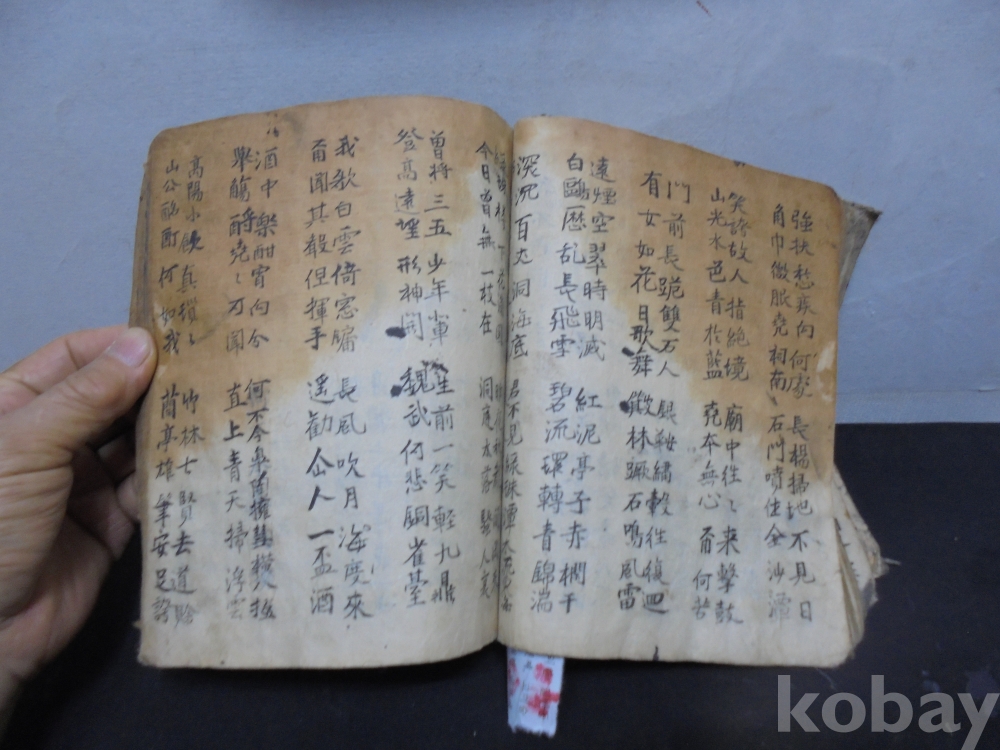 強扶愁疾向何處 長楊掃地不見日
角巾微服堯祠南 石門噴作金沙潭
笑誇故人指絕境 廟中往〻来擊鼓
山光水色青於藍 堯本無心爾何苦
門前長跪雙石人 銀鞍繡轂往復迴
有女如花日歌舞 簸林蹶石鳴風雷
遠煙空翠時明滅 紅泥亭子赤欄干
白鷗歷乱長飛雪 碧流環轉青錦湍
深沉百丈洞海底 君不見綠珠潭水
今日曾無一枝在 洞庭木落騷人哀
曾將三五少年輩 生前一笑輕九鼎
登高遠望形神開 魏武何悲銅雀臺
我歌白雲倚窓牖 長風吹月海度來
爾聞其聲但揮手 遥勸仙人一盃酒
酒中樂酣宵向分 何不令皋
舉觴酹堯〻可聞 直上青天掃浮雲
高陽小飲真瑣〻 竹林七賢去道賒
山公酩酊何如我 蘭亭雄筆安足誇
kobay